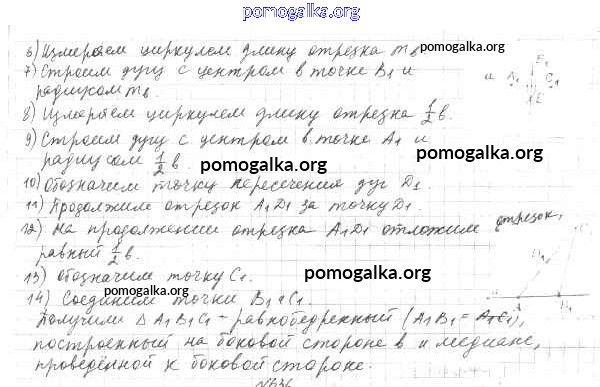 pomogalka.org
6) Измеряем циркулем длину отрезка m_b
pomogalka.org
7) Строим дугу с центром в точке B₁ и
радиусом m_b.
и A₁ C₁
E₁
E
8) Измеряем циркулем длину отрезка ½b.
pomogalka.org
9) Строим дугу с центром в точке A₁ и
радиусом ½b.
pomogalka.org
10) Обозначим точку пересечения дуг D₁
11) Продолжим отрезок A₁D₁ за точку D₁.
12) На продолжении отрезка A₁D₁ отложим отрезок,
равный ½b.
pomogalka.org
13) Обозначим точку C₁.
pomogalka.org
14) Соединим точки B₁ и C₁.
A
B₁
Получили Δ A₁B₁C₁ - равнобедренный (A₁B₁ = A₁C₁),
построенный на боковой стороне b и медиане,
проведённой к боковой стороне.
№636